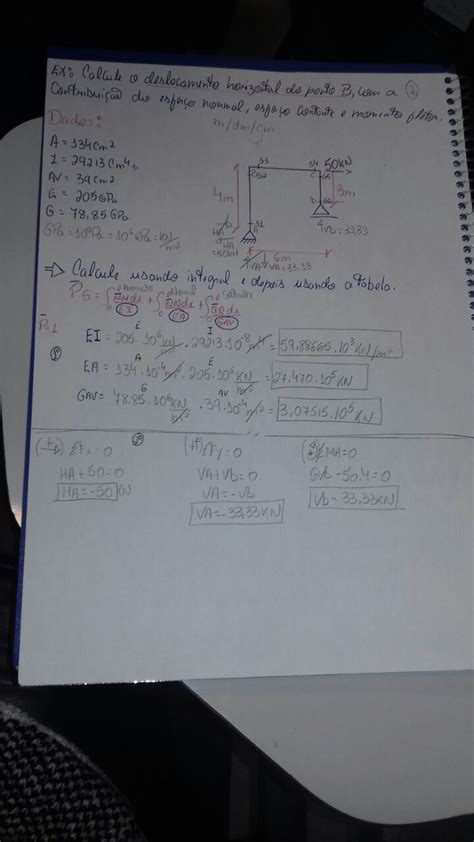 Ex: Calcule o deslocamento horizontal do ponto B, com a ②
Contribuição do esforço normal, esforço cortante e momento fletor.
Dados:
m/dm/cm
A = 134 cm²
I = 29213 cm⁴
AV = 39 cm²
E = 205 GPa
G = 78,85 GPa
GPa = 10⁹Pa = 10⁶KPa = KN/m²
S3
S2
S4
50KN
C
S5
4m
3m
S1
A
HA
=50KN
VA
VA = 33,33
6m
Vb = 33,33
⇒ Calcule usando integral e depois usando a tabela.
EI = 205.10⁶ KN/m² . 29213.10⁻⁸ m⁴ = 59,88665.10³ KN/m²
EA = 134.10⁻⁴ m² . 205.10⁶ KN/m² = 27,470.10⁵ KN
GAV = 78,85.10⁶ KN/m² . 39.10⁻⁴ m² = 3,07515.10⁵ KN
(→+) ΣFx = 0
HA + 50 = 0
HA = -50 KN
(↑+) ΣFy = 0
VA + Vb = 0
VA = -Vb
VA = -33,33 KN
ΣMA = 0
6Vb - 50.4 = 0
Vb = 33,33 KN